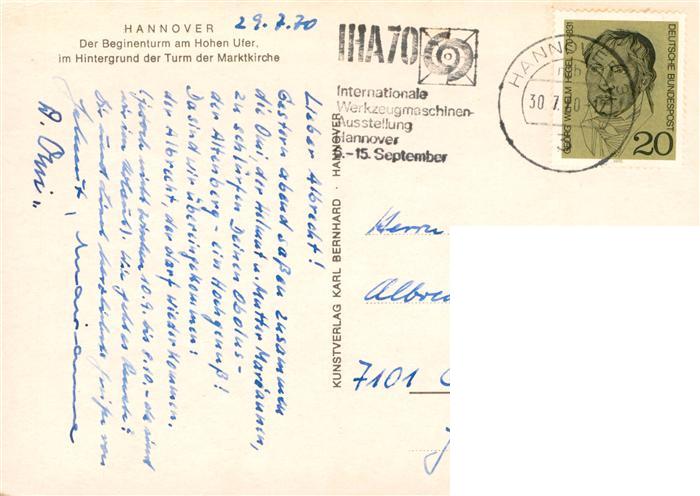 HANNOVER
Der Beginenturm am Hohen Ufer,
im Hintergrund der Turm der Marktkirche
29.7.70
Lieber Albrecht!
Gestern abend saßen zusammen
die Omi, der Helmut u. Mutter Mariannen,
zu schlürfen Deinen Obolus-
der Altenberg - ein Hochgenuß!
Da sind wir übereingekommen:
der Albrecht, der darf wieder kommen.
(jedoch nicht zwischen 10.9. bis 8.10. - da sind
wir im Urlaub).
Helmut, Marianne
D. Omi
KUNSTVERLAG KARL BERNHARD · HANNOVER
IHA70
Internationale
Werkzeugmaschinen-
Ausstellung
Hannover
5.-15. September
HANNOVER
30.7.70
GEORG WILHELM HEGEL 1770-1831
DEUTSCHE BUNDESPOST
20
Herrn
7101